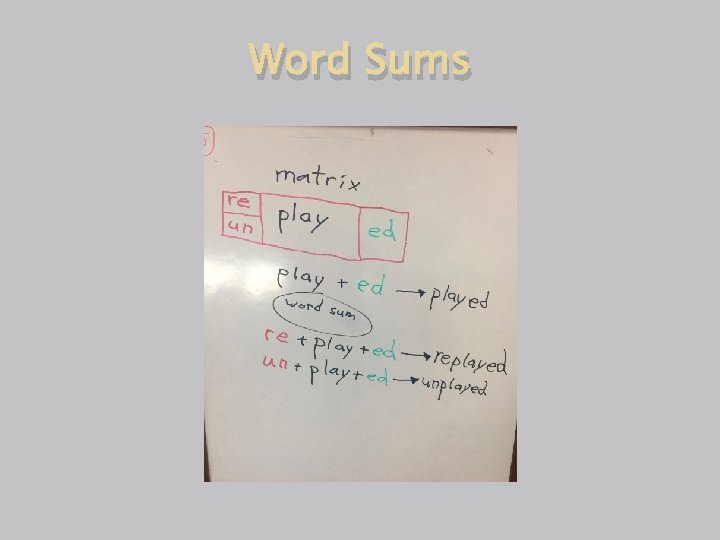 Word Sums
5
matrix
re play ed
un
play + ed → played
word sum
re + play + ed → replayed
un + play + ed → unplayed